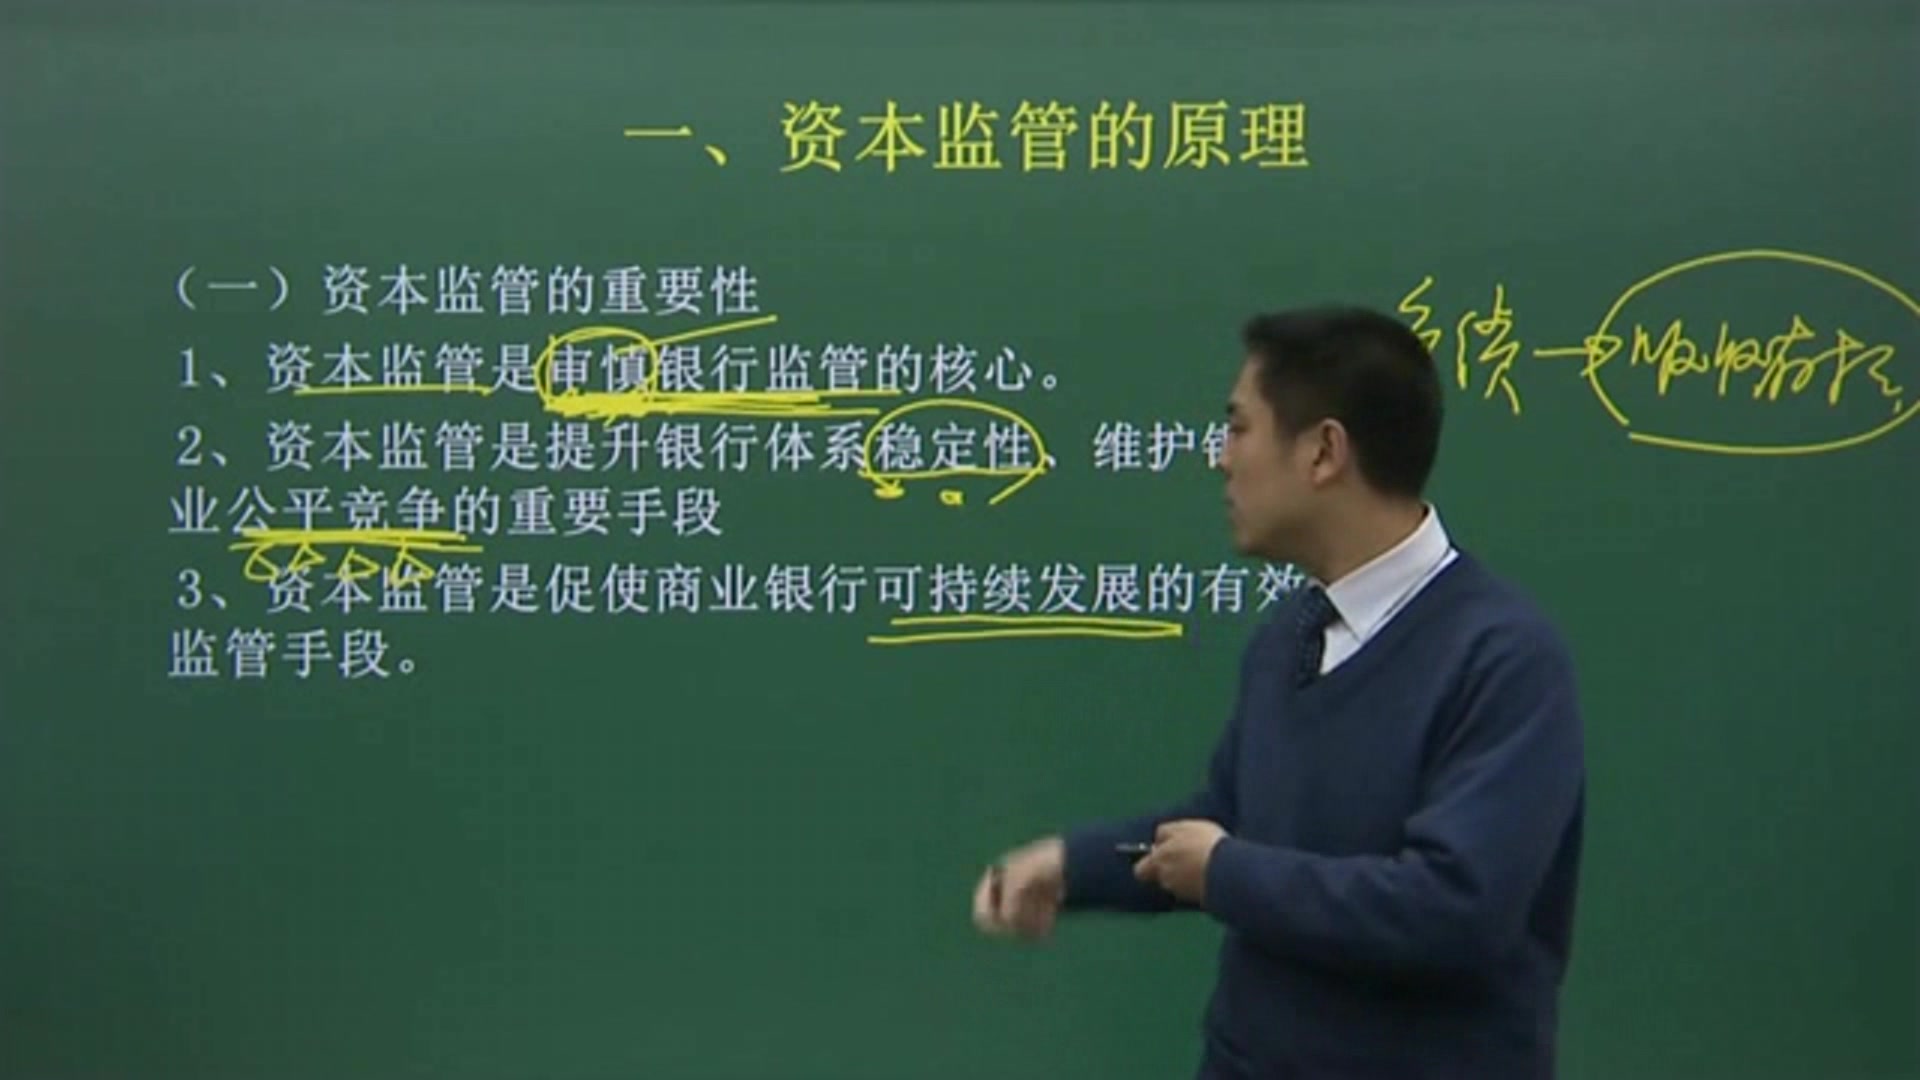 一、资本监管的原理
（一）资本监管的重要性
1、资本监管是审慎银行监管的核心。
负债→吸收存款
2、资本监管是提升银行体系稳定性、维护银
业公平竞争的重要手段
3、资本监管是促使商业银行可持续发展的有效
监管手段。